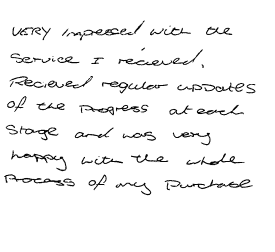 VERY Impressed with the
Service I recieved.
Recieved regular updates
of the Progress at each
Stage and was very
happy with the whole
Process of my Purchase